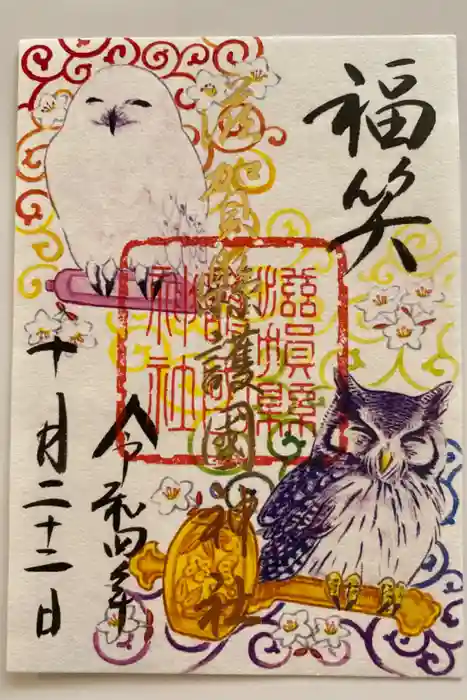 福笑
滋賀縣護國神社
滋賀縣護國神社
令和四年
十月二十二日